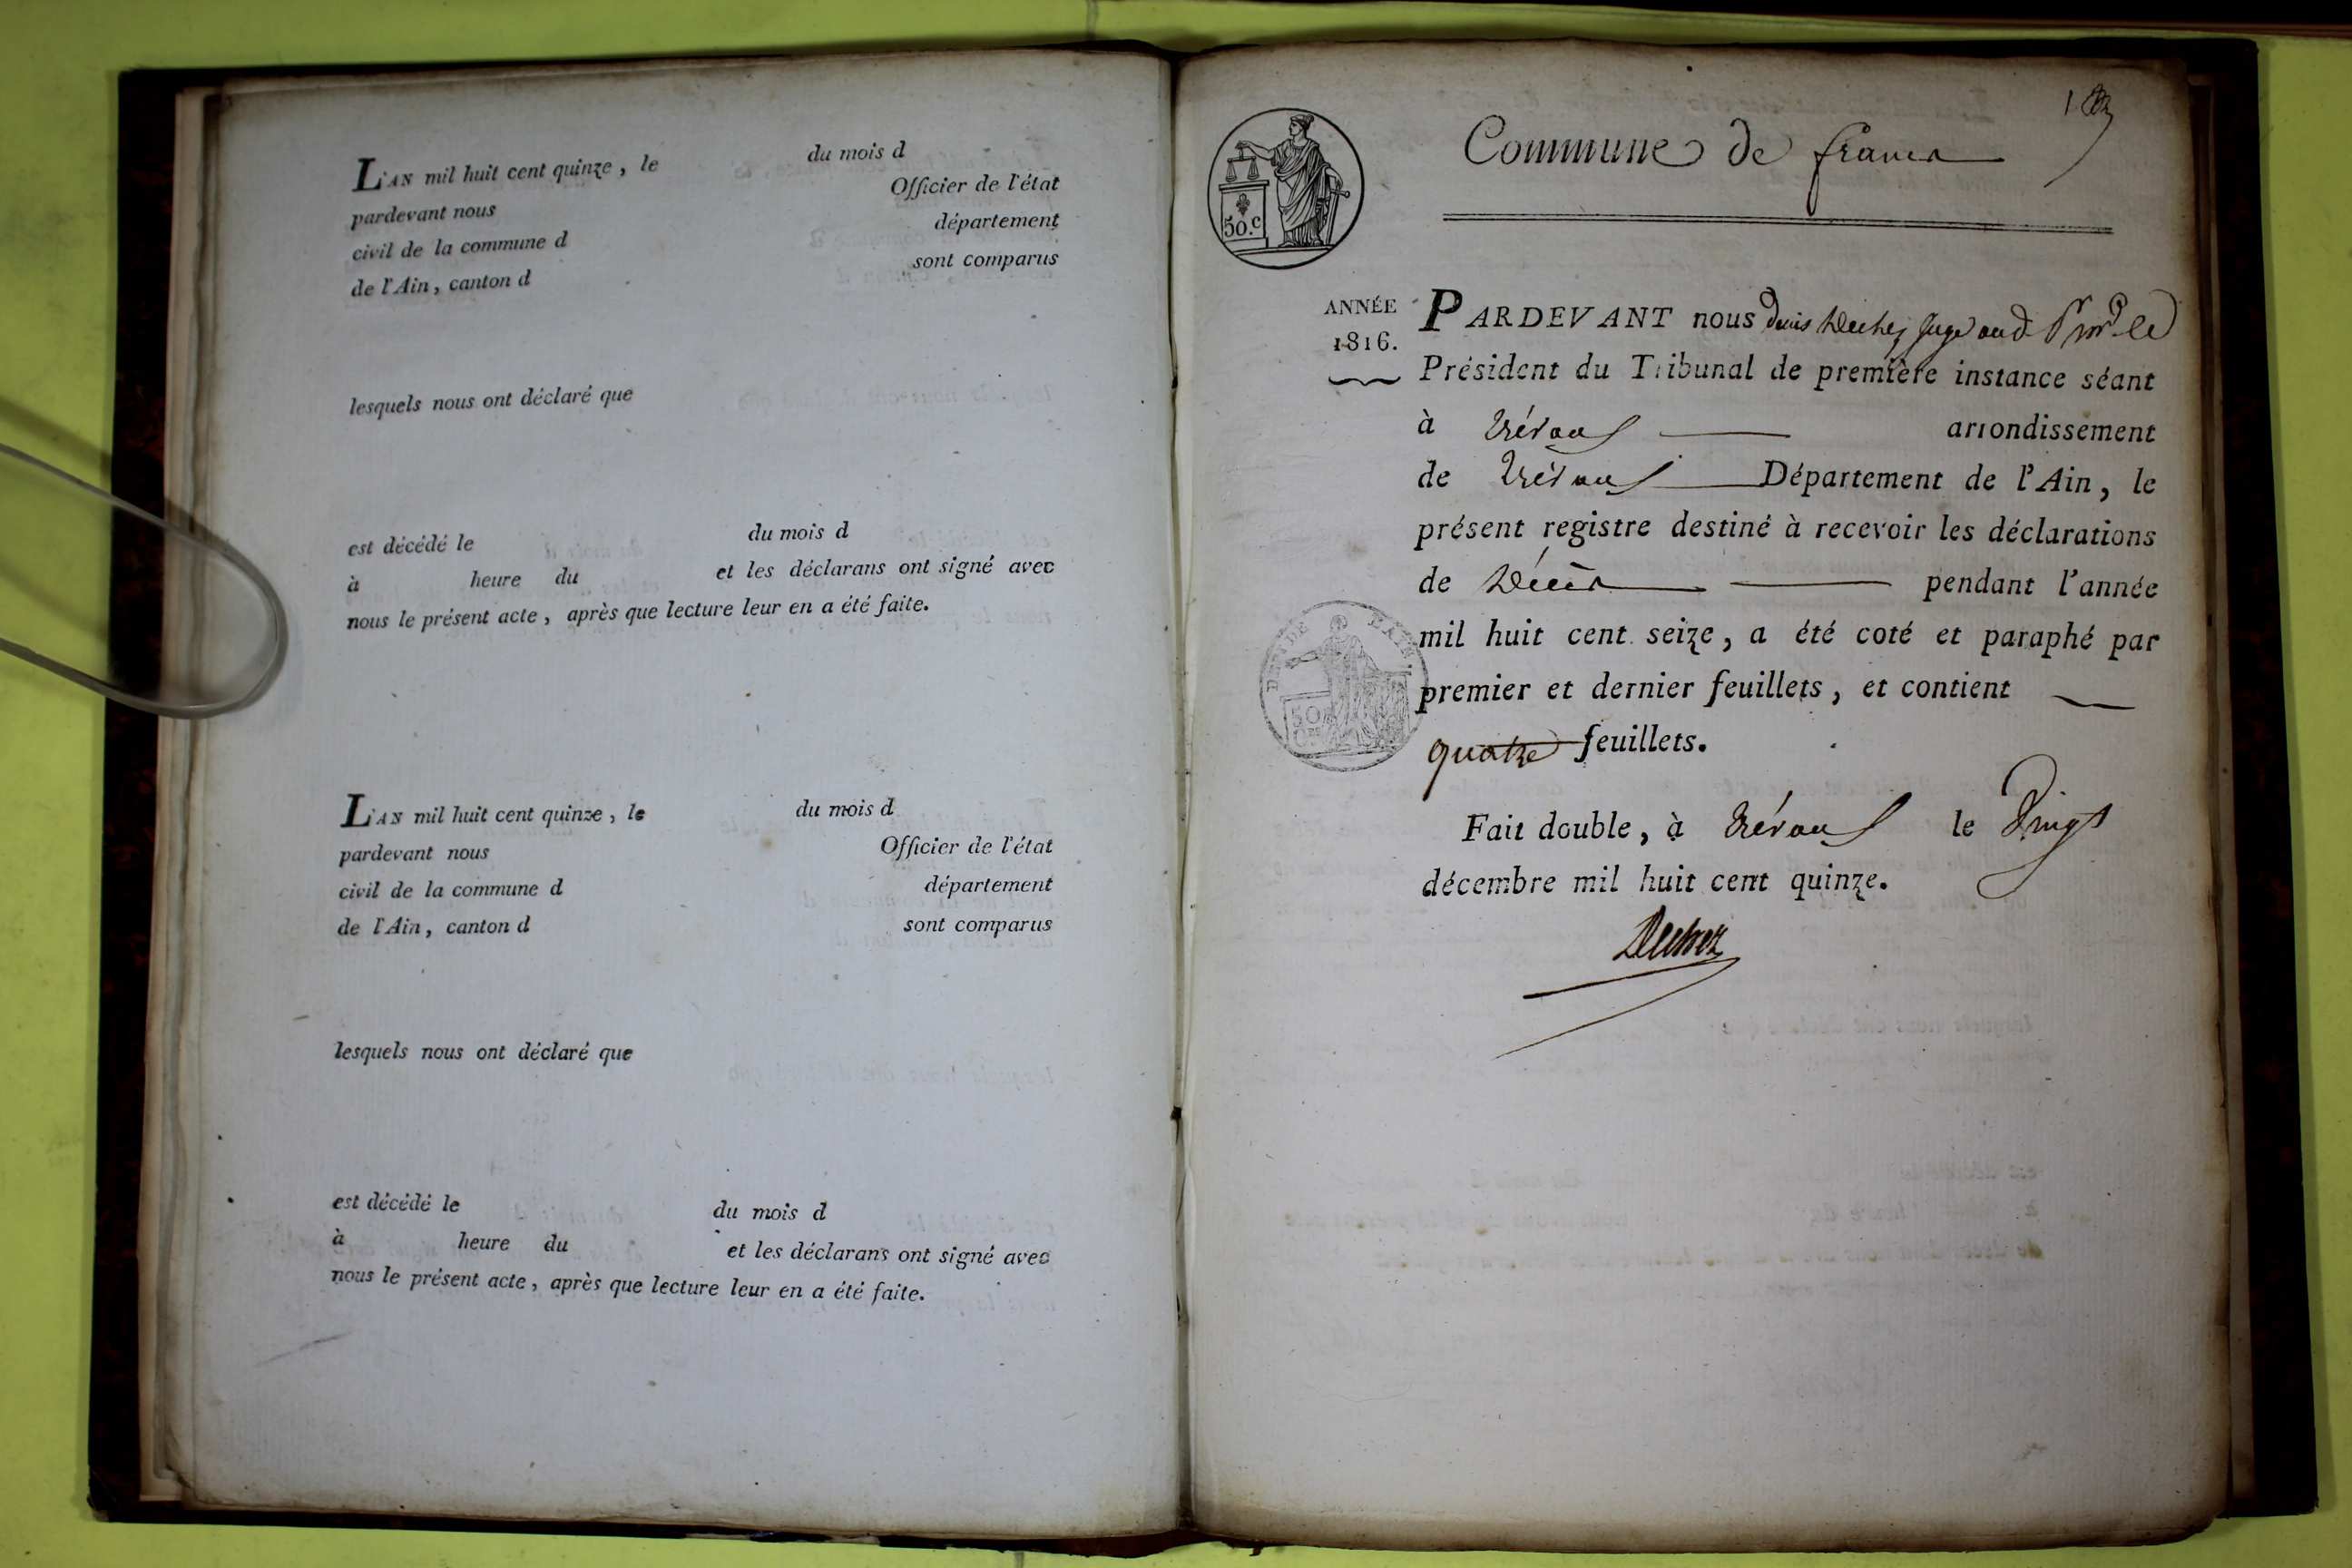 L'AN mil huit cent quinze, le du mois d
pardevant nous Officier de l'état
civil de la commune d département
de l'Ain, canton d sont comparus
lesquels nous ont déclaré que
est décédé le du mois d
à heure du et les déclarans ont signé avec
nous le présent acte, après que lecture leur en a été faite.
L'AN mil huit cent quinze, le du mois d
pardevant nous Officier de l'état
civil de la commune d département
de l'Ain, canton d sont comparus
lesquels nous ont déclaré que
est décédé le du mois d
à heure du et les déclarans ont signé avec
nous le présent acte, après que lecture leur en a été faite.
Commune de francs
50.c
ANNÉE
1816.
PARDEVANT nous Juge le
Président du Tribunal de première instance séant
à trévoux arrondissement
de trévoux Département de l'Ain, le
présent registre destiné à recevoir les déclarations
de Décès pendant l'année
mil huit cent seize, a été coté et paraphé par
premier et dernier feuillets, et contient
quatre feuillets.
Fait double, à trévoux le Vingt
décembre mil huit cent quinze.